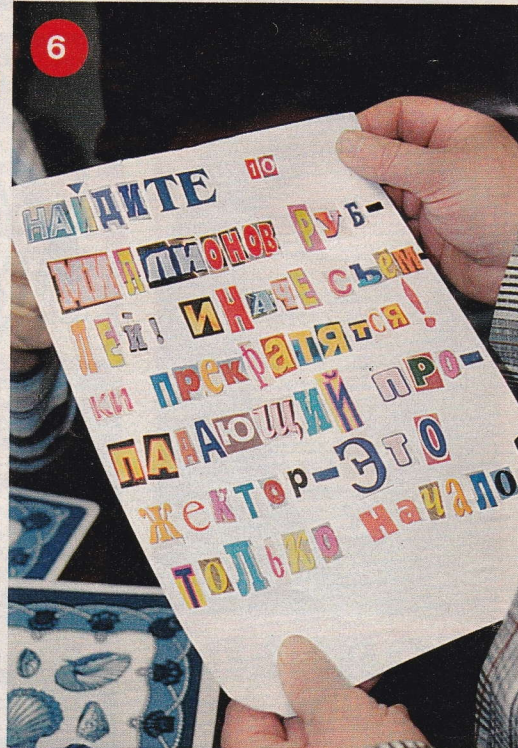 6
НАЙДИТЕ 10
МИЛЛИОНОВ РУБ-
ЛЕЙ! ИНАЧЕ СЪЕМ-
КИ ПРЕКРАТЯТСЯ!
ПАДАЮЩИЙ ПРО-
ЖЕКТОР-ЭТО
ТОЛЬКО НАЧАЛО